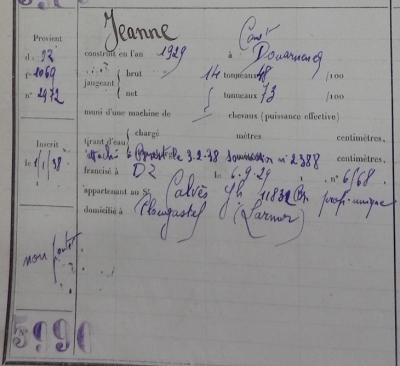 Jeanne
Provient
d. 92
f. 1069
n° 2972
construit en l'an 1929 à Douarnenez
jaugeant { brut 14 tonneaux 48 /100
net tonneaux 73 /100
muni d'une machine de chevaux (puissance effective)
tirant d'eau { chargé mètres centimètres,
Brest le 3.2.38 soumission n° 2388 centimètres,
francisé à DZ le 6.9.29, n° 6/68.
appartenant au Sr Calvès
domicilié à Plougastel (Larmor)
Inscrit
le 1/1/38
5990